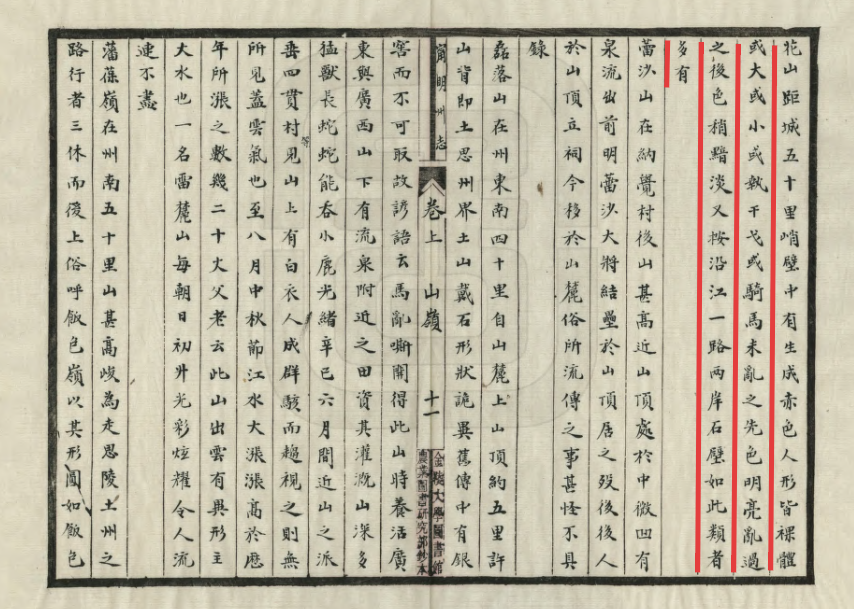 花山距城五十里峭壁中有生成赤色人形皆裸體
或大或小或執干戈或騎馬未亂之先色明亮亂過
之後色稍黯淡又按沿江一路兩岸石壁如此類者
多有
蕾沙山在納覺村後山甚高近山頂處於中微凹有
泉流出前明蕾沙大將結壘於山頂居之歿後後人
於山頂立祠今移於山麓俗所流傳之事甚怪不具
錄
磊落山在州東南四十里自山麓上山頂約五里許
山背即土思州界土山戴石形狀詭異舊傳中有銀
甯明州志
卷上 山嶺 十一
金陵大學圖書館
農業圖書研究部鈔本
窖而不可取故諺語云馬亂嘶開得此山時養活廣
東與廣西山下有流泉附近之田資其灌溉山深多
猛獸長蛇蛇能吞小鹿光緒辛巳六月間近山之派
岳四貫村見山上有白衣人成群駭而趨視之則無
所見蓋雲氣也至八月中秋節江水大漲漲高於歷
年所漲之數幾二十丈父老云此山出雲有異形主
大水也一名雷麓山每朝日初升光彩炫耀令人流
連不盡
舊葆嶺在州南五十里山甚高峻為走思陵土州之
路行者三休而後上俗呼飯包嶺以其形圓如飯包